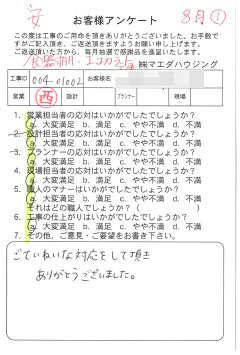 安
お客様アンケート
8月①
この度は工事のご用命を頂きありがとうございました。お手数で
すがご記入頂き、ご返送頂きますようお願い申し上げます。
ご返送頂いた方から、毎月抽選で感謝品を進呈いたします。
㈱マエダハウジング
工事ID 004-01002 お客様名
営業 西 設計 プランナー 現場
1. 営業担当者の応対はいかがでしたでしょうか？
a. 大変満足 b. 満足 c. やや不満 d. 不満
2. 設計担当者の応対はいかがでしたでしょうか？
a. 大変満足 b. 満足 c. やや不満 d. 不満
3. プランナーの応対はいかがでしたでしょうか？
a. 大変満足 b. 満足 c. やや不満 d. 不満
4. 現場担当者の応対はいかがでしたでしょうか？
a. 大変満足 b. 満足 c. やや不満 d. 不満
5. 職人のマナーはいかがでしたでしょうか？
a. 大変満足 b. 満足 c. やや不満 d. 不満
それはどの職人でしょうか？(
6. 工事の仕上がりはいかがでしたでしょうか？
a. 大変満足 b. 満足 c. やや不満 d. 不満
7. その他、ご意見・ご要望をお書き下さい。
ごていねいな対応をして頂き
ありがとうございました。